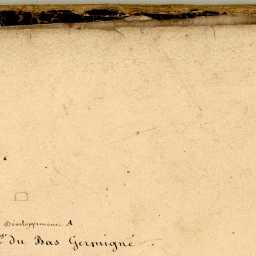 Développement A
du Bas Germigné